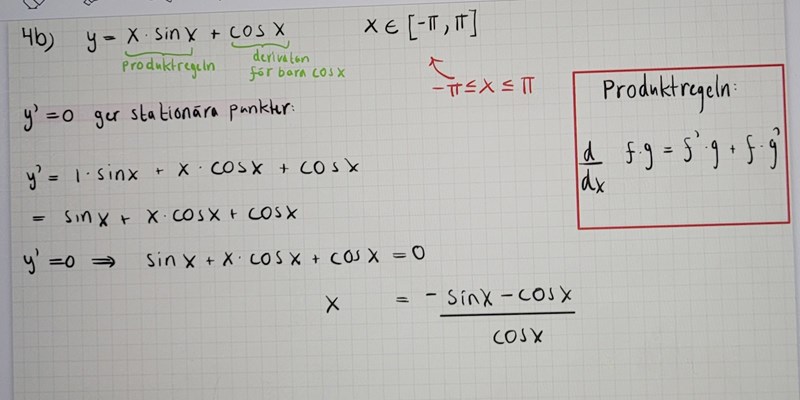 4b) y = x · sin x + cos x x ∈ [-π, π]
produktregeln derivatan
för bara cos x
-π ≤ x ≤ π
Produktregeln:
d/dx f·g = f'·g + f·g'
y' = 0 ger stationära punkter:
y' = 1 · sin x + x · cos x + cos x
= sin x + x · cos x + cos x
y' = 0 ⇒ sin x + x · cos x + cos x = 0
x = - sin x - cos x
cos x